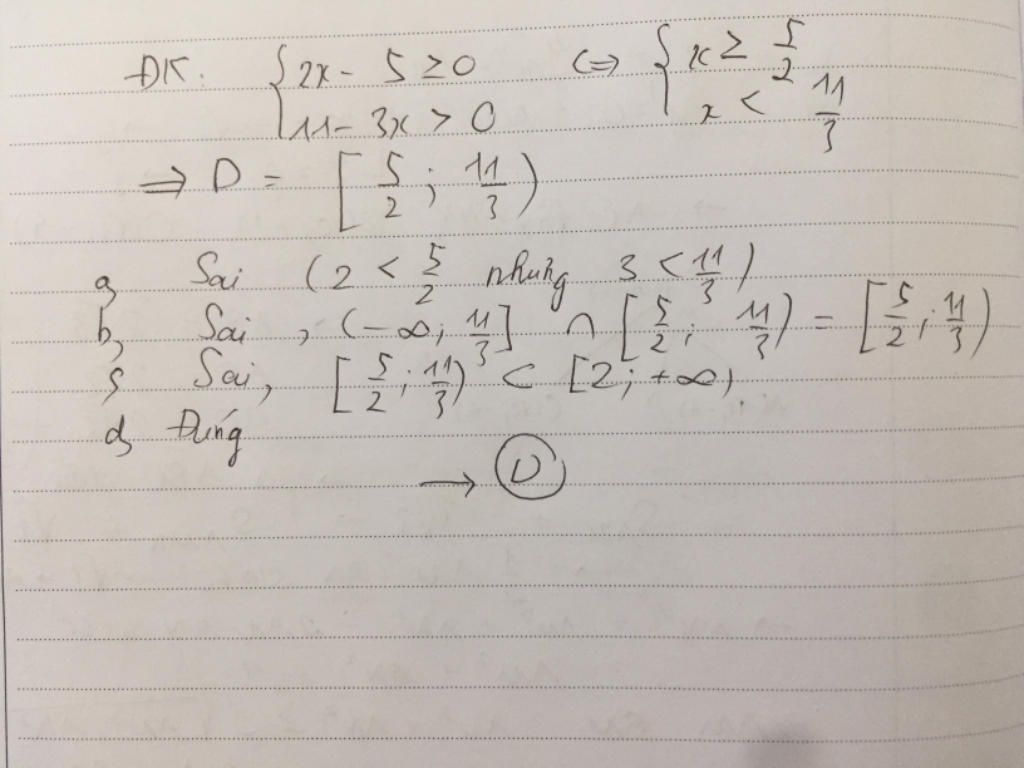 ĐK: { 2x - 5 ≥ 0 ⇔ { x ≥ 5/2
11 - 3x > 0 x < 11/3
⇒ D = [5/2; 11/3)
a, Sai (2 < 5/2 nhưng 3 < 11/3)
b, Sai, (-∞; 11/3] ∩ [5/2; 11/3) = [5/2; 11/3)
c, Sai, [5/2; 11/3) ⊂ [2; +∞).
d, Đúng
→ D